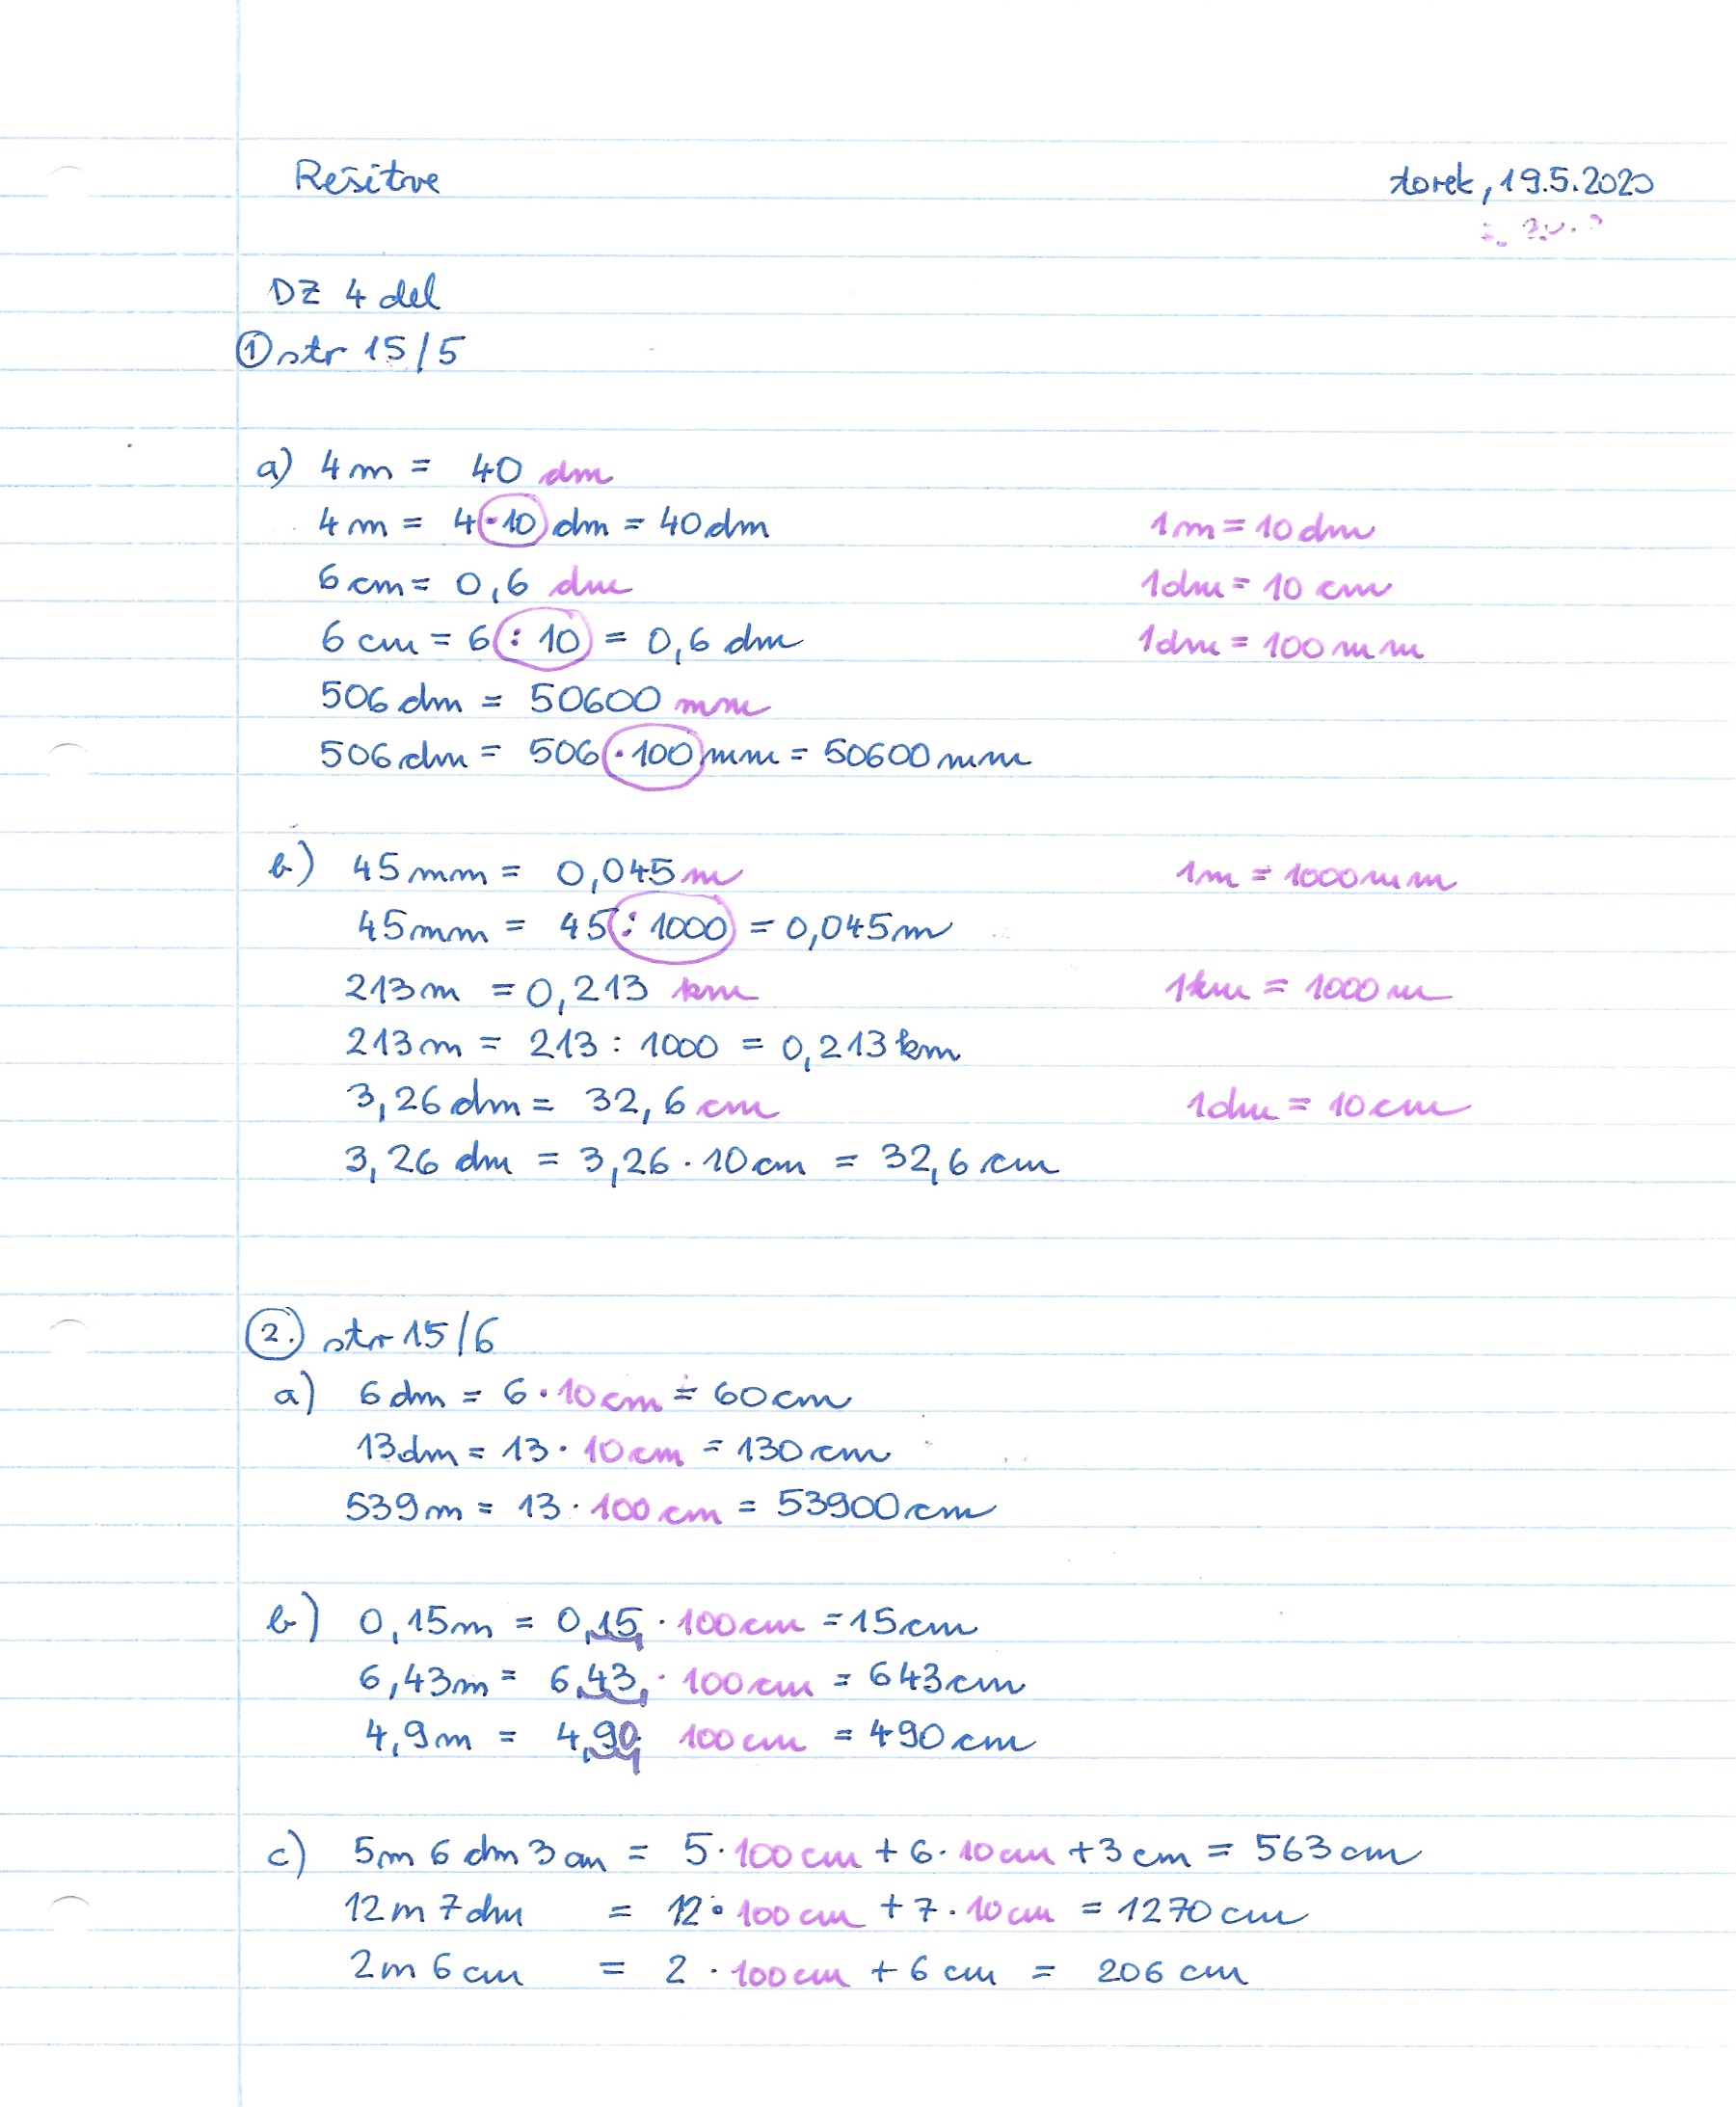 Rešitve torek, 19.5.2020
DZ 4 del
① str 15/5
a) 4 m = 40 dm
4 m = 4 · 10 dm = 40 dm 1 m = 10 dm
6 cm = 0,6 dm 1 dm = 10 cm
6 cm = 6 : 10 = 0,6 dm 1 dm = 100 mm
506 dm = 50600 mm
506 dm = 506 · 100 mm = 50600 mm
b) 45 mm = 0,045 m 1 m = 1000 mm
45 mm = 45 : 1000 = 0,045 m
213 m = 0,213 km 1 km = 1000 m
213 m = 213 : 1000 = 0,213 km
3,26 dm = 32,6 cm 1 dm = 10 cm
3,26 dm = 3,26 · 10 cm = 32,6 cm
②. str 15/6
a) 6 dm = 6 · 10 cm = 60 cm
13 dm = 13 · 10 cm = 130 cm
539 m = 13 · 100 cm = 53900 cm
b) 0,15 m = 0,15, · 100 cm = 15 cm
6,43 m = 6,43, · 100 cm = 643 cm
4,9 m = 4,90, 100 cm = 490 cm
c) 5 m 6 dm 3 cm = 5 · 100 cm + 6 · 10 cm + 3 cm = 563 cm
12 m 7 dm = 12 · 100 cm + 7 · 10 cm = 1270 cm
2 m 6 cm = 2 · 100 cm + 6 cm = 206 cm